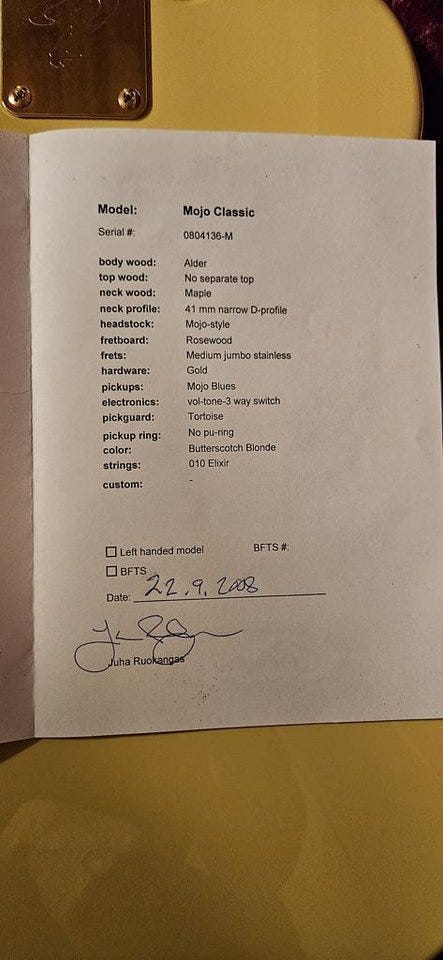 Model: Mojo Classic
Serial #: 0804136-M
body wood: Alder
top wood: No separate top
neck wood: Maple
neck profile: 41 mm narrow D-profile
headstock: Mojo-style
fretboard: Rosewood
frets: Medium jumbo stainless
hardware: Gold
pickups: Mojo Blues
electronics: vol-tone-3 way switch
pickguard: Tortoise
pickup ring: No pu-ring
color: Butterscotch Blonde
strings: 010 Elixir
custom: -
Left handed model BFTS #:
BFTS
Date: 22.9.2008
Juha Ruokangas